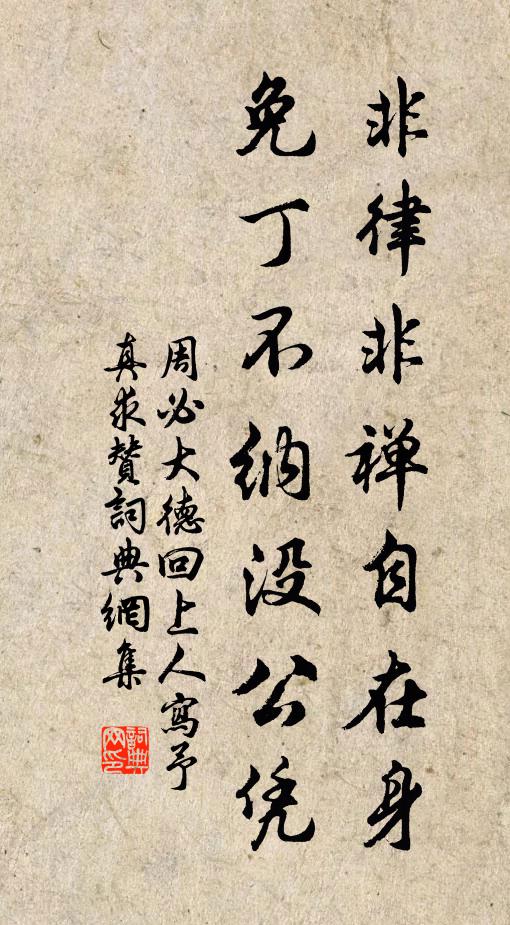 非律非禅自在身
免丁不纳没公凭
周必大德回上人寫予
真求贊詞典網集
詞典